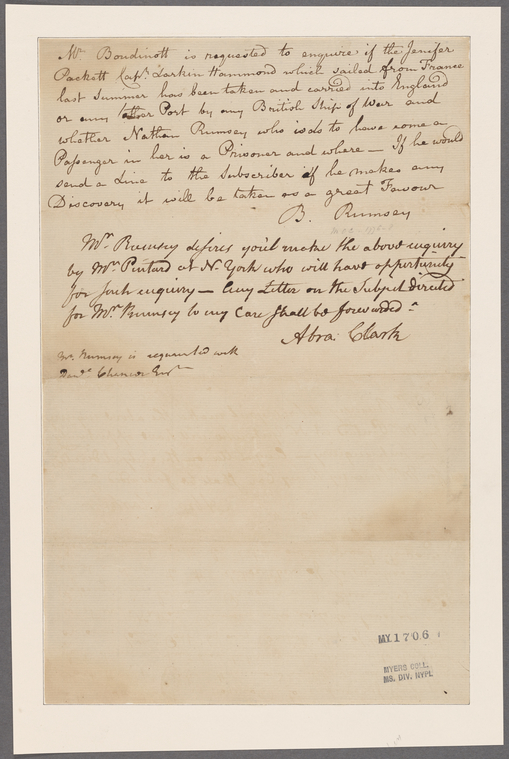 Mr. Boudinott is requested to enquire if the Jenifer
Packett Capt. Larkin Hammond which sailed from France
last Summer has been taken and carried into England
or any other Port by any British Ship of War and
whether Nathan Rumsey who is sd. to have come a
Passenger in her is a Prisoner and where — If he would
send a Line to the Subscriber if he makes any
Discovery it will be taken as a great Favour
B. Rumsey
Mr. Rumsey desires you'l make the above inquiry
by Mr. Pintard at N. York who will have oppertunity
for such enquiry — Any Letter on the Subject directed
for Mr. Rumsey to my Care shall be forwarded.
Abra: Clark
Mr. Rumsey is requested with
MY 1706
MYERS COLL.
MS. DIV. NYPL